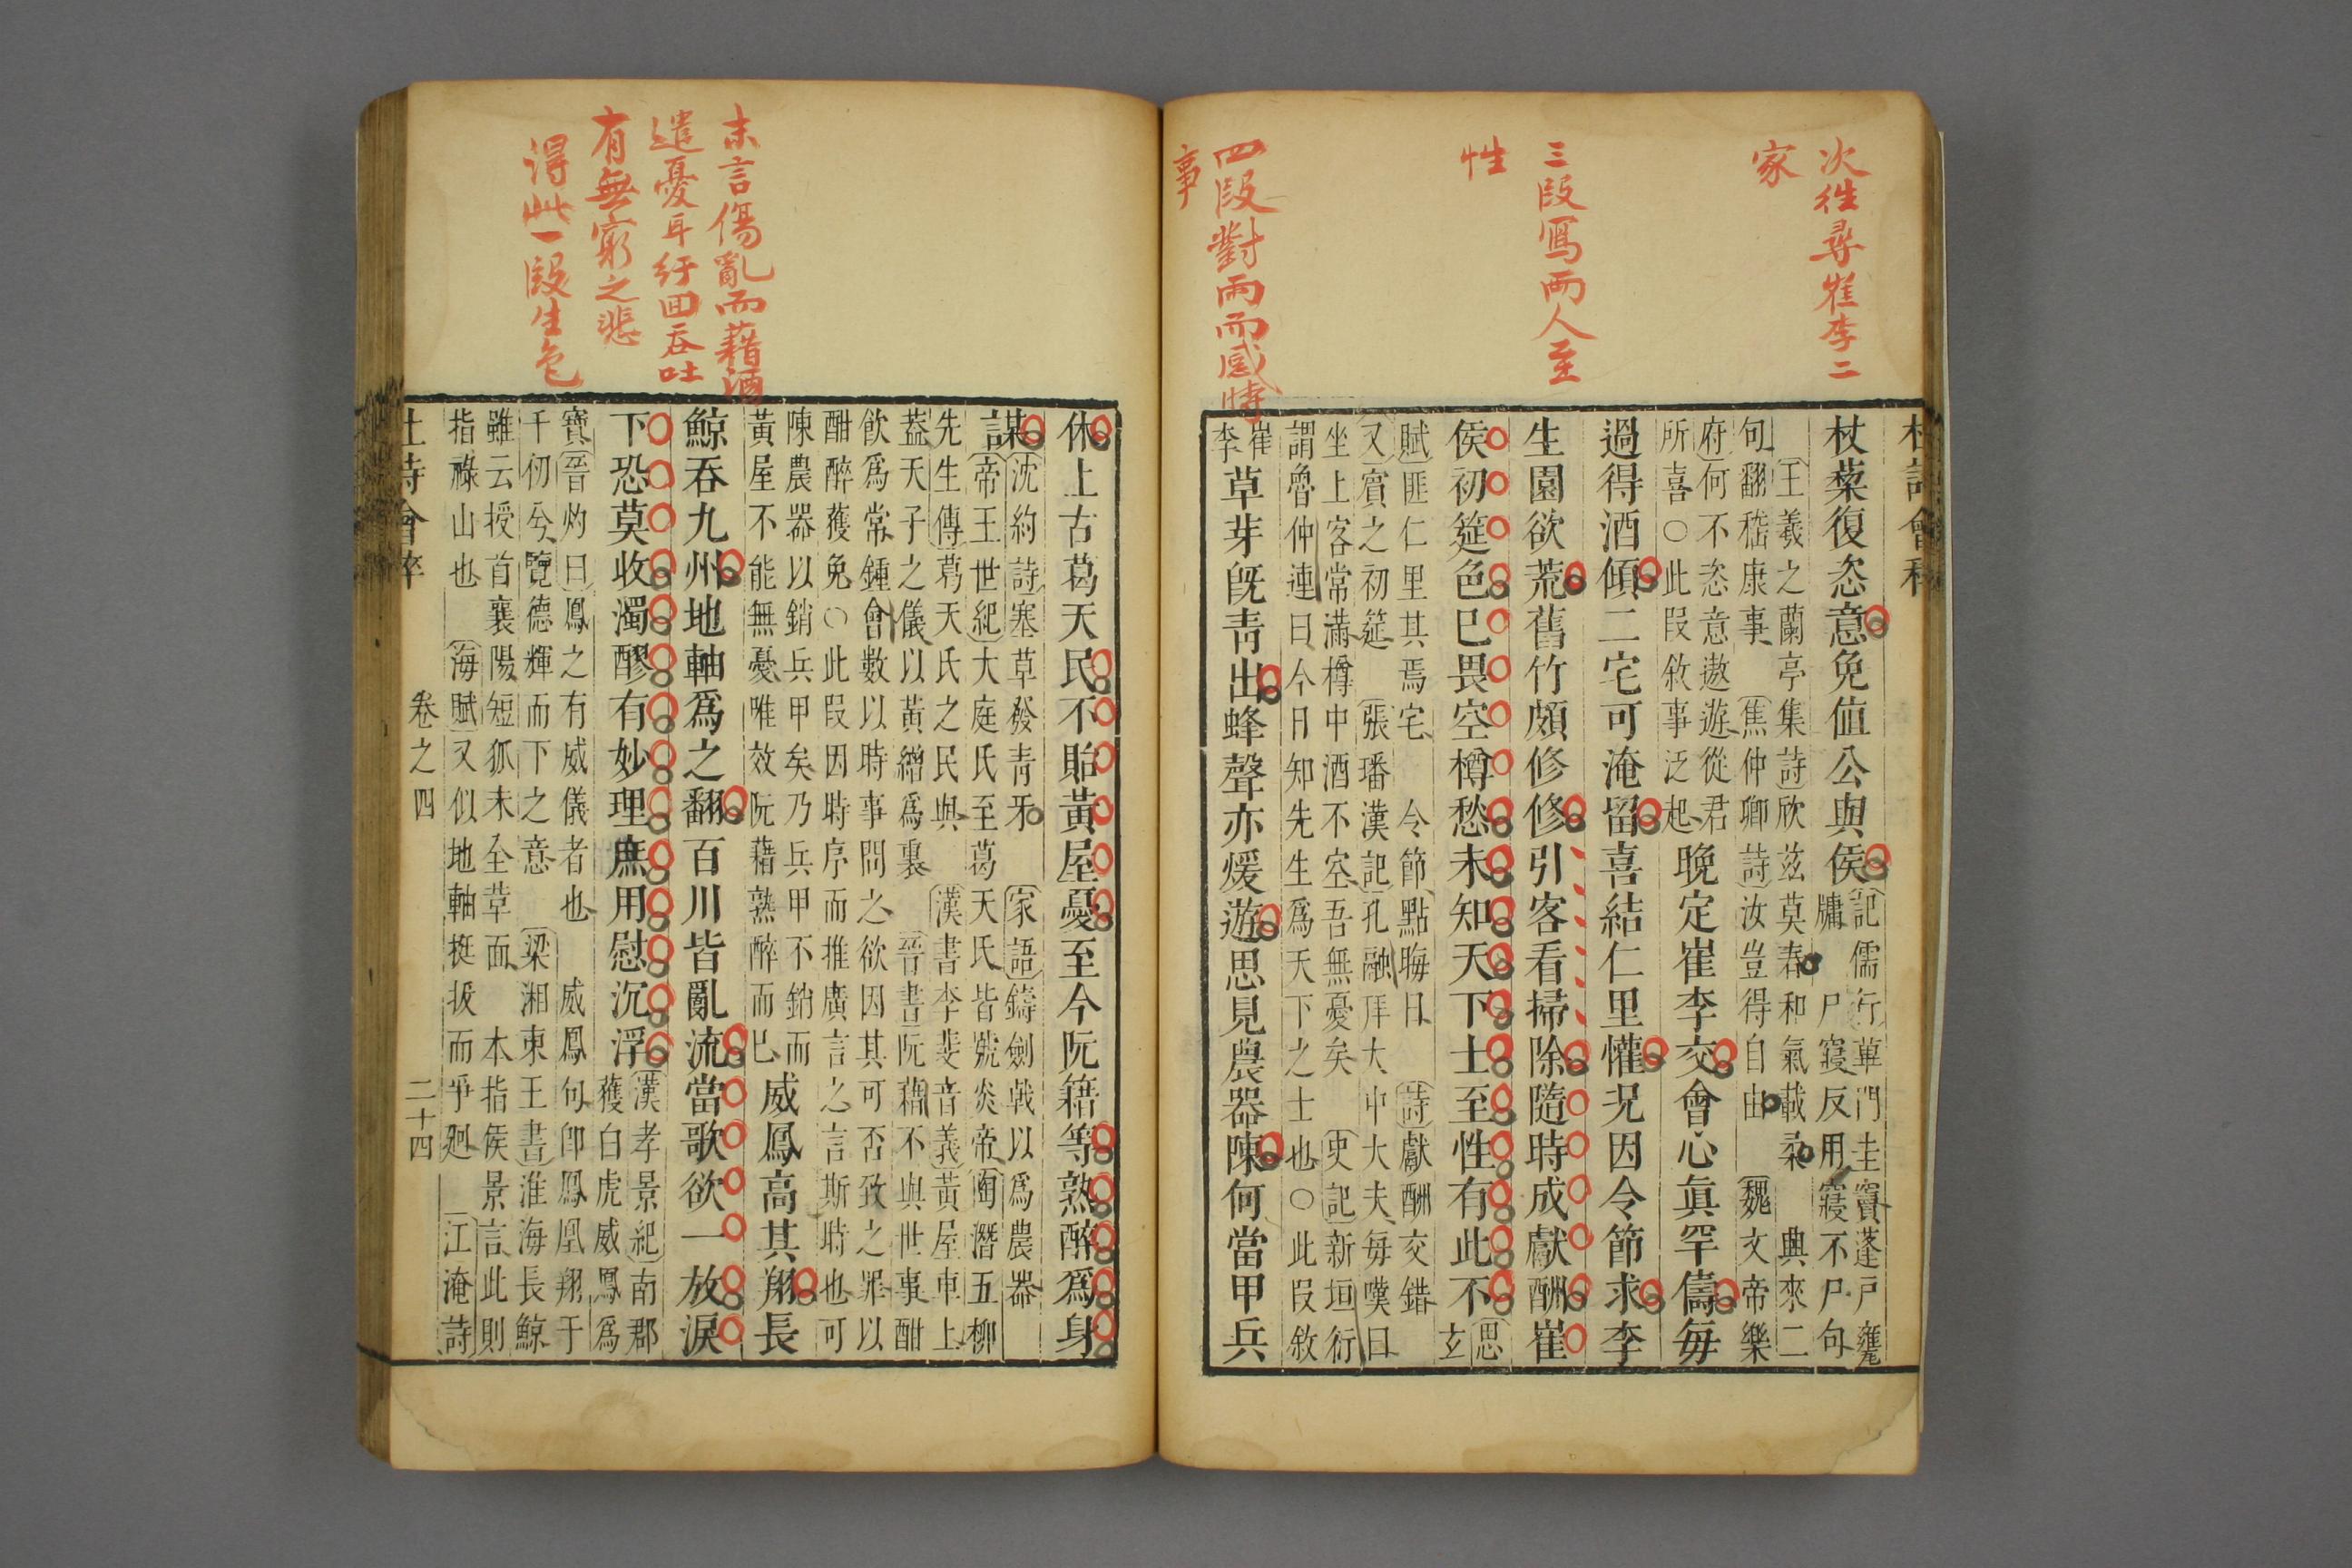 次徃尋崔李二
家
三段寫兩人至
性
四段對雨而感時
事
杖藜復恣意免値公與侯
記儒行蓽門圭竇蓬戶甕
牖 尸寢反用寢不尸句
王羲之蘭亭集詩欣茲莫春和氣載柔 興來二
句翻嵇康事 焦仲卿詩汝豈得自由 魏文帝樂
府何不恣意遨遊從君
所喜○此段敘事泛起
晚定崔李交會心眞罕儔每
過得酒傾二宅可淹留喜結仁里懽況因令節求李
生園欲荒舊竹頗修修引客看掃除隨時成獻酬崔
侯初筵色巳畏空樽愁未知天下士至性有此不
思
玄
賦匪仁里其焉宅 令節點晦日 詩獻酬交錯
又賓之初筵 張璠漢記孔融拜大中大夫每嘆曰
坐上客常滿樽中酒不空吾無憂矣 史記新垣衍
謂魯仲連曰今日知先生爲天下之士也○此段敘
崔
李
草芽旣靑出蜂聲亦煖遊思見農器陳何當甲兵
末言傷亂而藉酒
遣憂耳紆回吞吐
有無窮之悲
得此一段生色
休上古葛天民不貽黃屋憂至今阮籍等熟醉爲身
謀
沈約詩塞草發靑牙 家語鑄劍戟以爲農器
帝王世紀大庭氏至葛天氏皆號炎帝陶潛五柳
先生傳葛天氏之民與 漢書李斐音義黃屋車上
葢天子之儀以黃繒爲裏 晉書阮藉不與世事酣
飮爲常鍾會數以時事問之欲因其可否致之罪以
酣醉獲免○此段因時序而推廣言之言斯時也可
陳農器以銷兵甲矣乃兵甲不銷而
黃屋不能無憂唯效阮藉熟醉而巳
威鳳高其翔長
鯨吞九州地軸爲之翻百川皆亂流當歌欲一放淚
下恐莫收濁醪有妙理庶用慰沉浮
漢孝景紀南郡
獲白虎威鳳爲
寶晉灼曰鳳之有威儀者也 威鳳句卽鳳凰翔于
千仞兮覽德輝而下之意 梁湘東王書淮海長鯨
雖云授首襄陽短狐未全革面 本指侯景言此則
指祿山也 海賦又似地軸挺拔而爭廻 江淹詩
卷之四 二十四